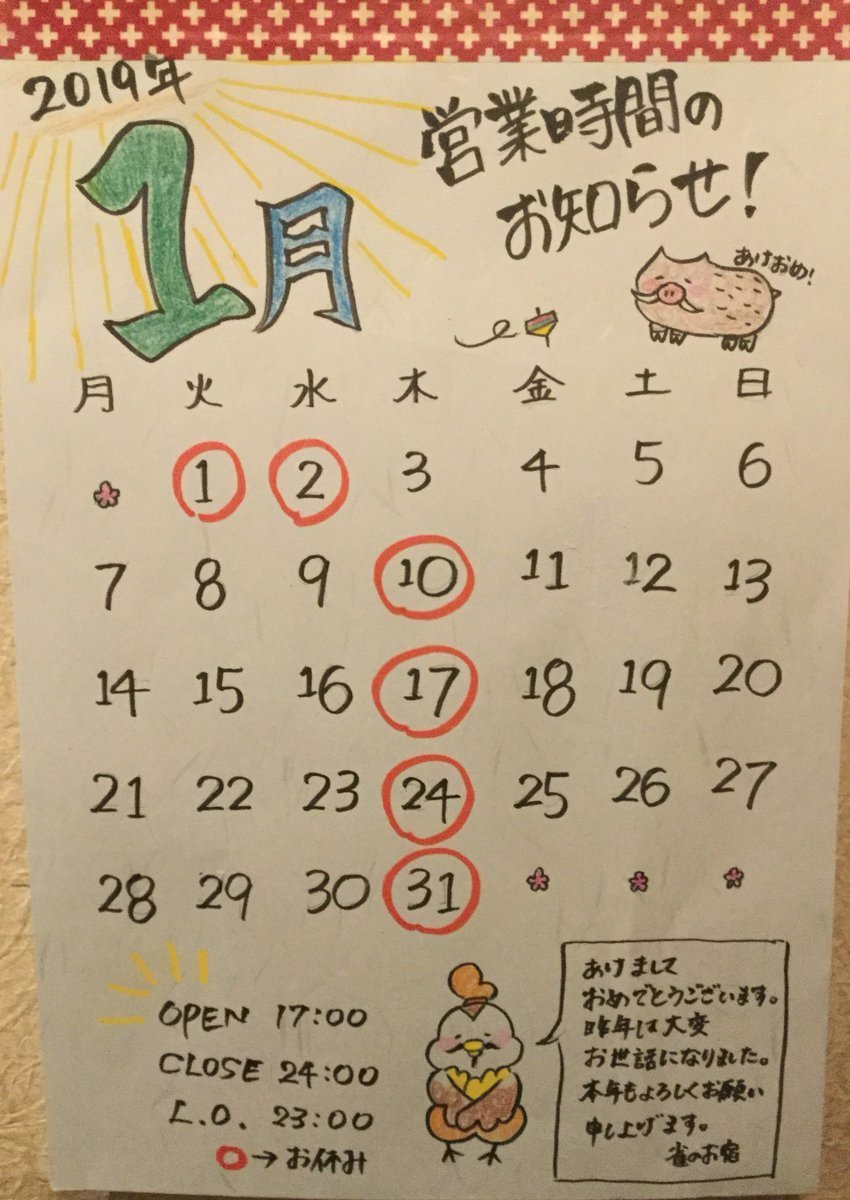 2019年
1月
営業時間の
お知らせ!
あけおめ!
月 火 水 木 金 土 日
1 2 3 4 5 6
7 8 9 10 11 12 13
14 15 16 17 18 19 20
21 22 23 24 25 26 27
28 29 30 31
OPEN 17:00
CLOSE 24:00
L.O. 23:00
○→お休み
あけまして
おめでとうございます。
昨年は大変
お世話になりました。
本年もよろしくお願い
申し上げます。
雀のお宿